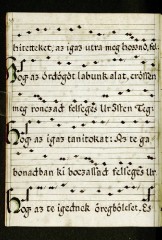 hitetteket, az igaz utra meg hoznod, fel
Hog az ördögöt labunk alat, erössen
meg ronczad felseges Ur Isten Teg:
Hog az igaz tanitokat: Az te ga
bonadban ki boczassad felseges Ur
Hog az te igednek öregbölset. Es